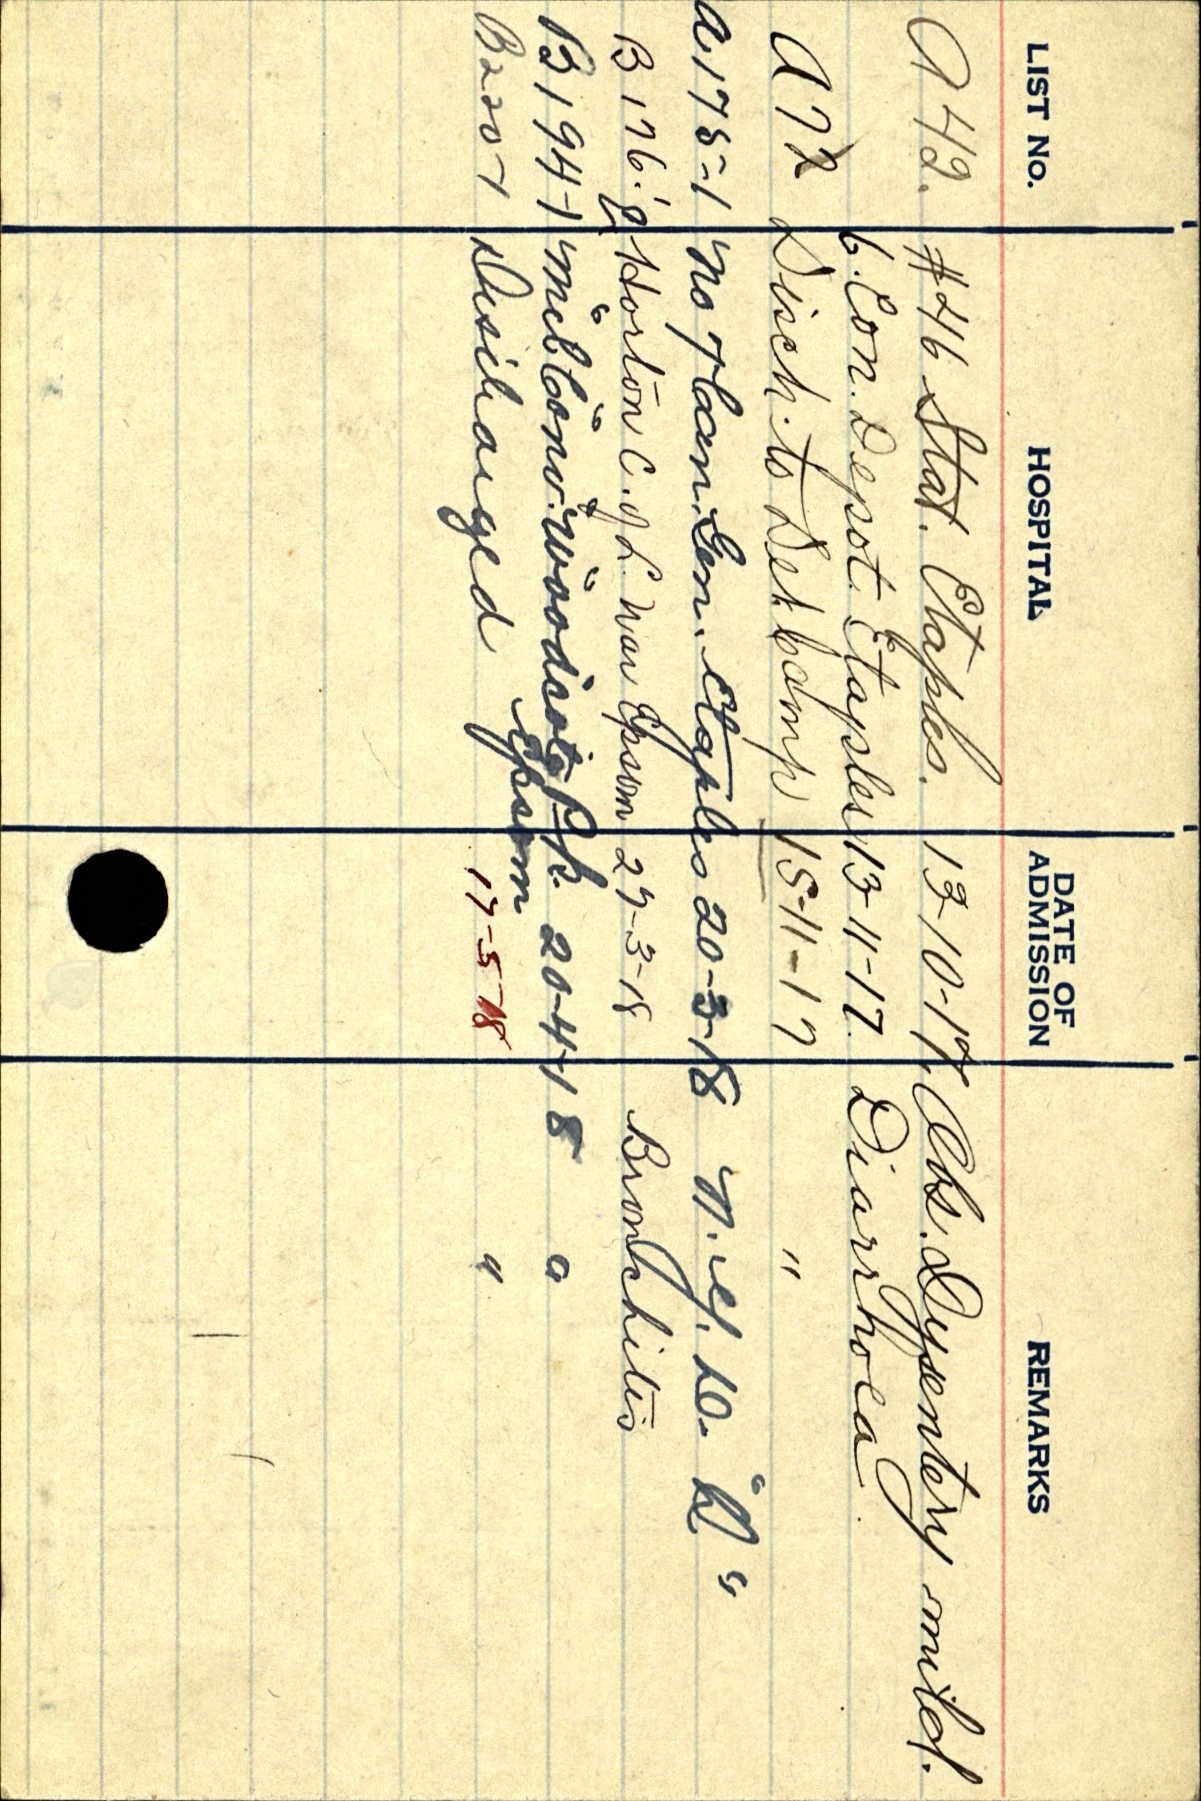 LIST No. HOSPITAL DATE OF ADMISSION REMARKS
A 42. #46 Stat. Etaples. 13-10-17. Obs. Dysentery mild.
6. Con. Depot. Etaples 13-11-17. Diarrhoea
A 72 Disch. to Det Camp 15-11-17 "
A 175-1 No 7 Can. Gen. Etaples 20-3-18 N.Y.D. "
B 176. Horton C. of L. War Epsom 27-3-18 Bronchitis
B 194-1 Mil Conv. Woodcote Pk. 20-4-18 "
Epsom
B220-1 Discharged 17-5-18 "